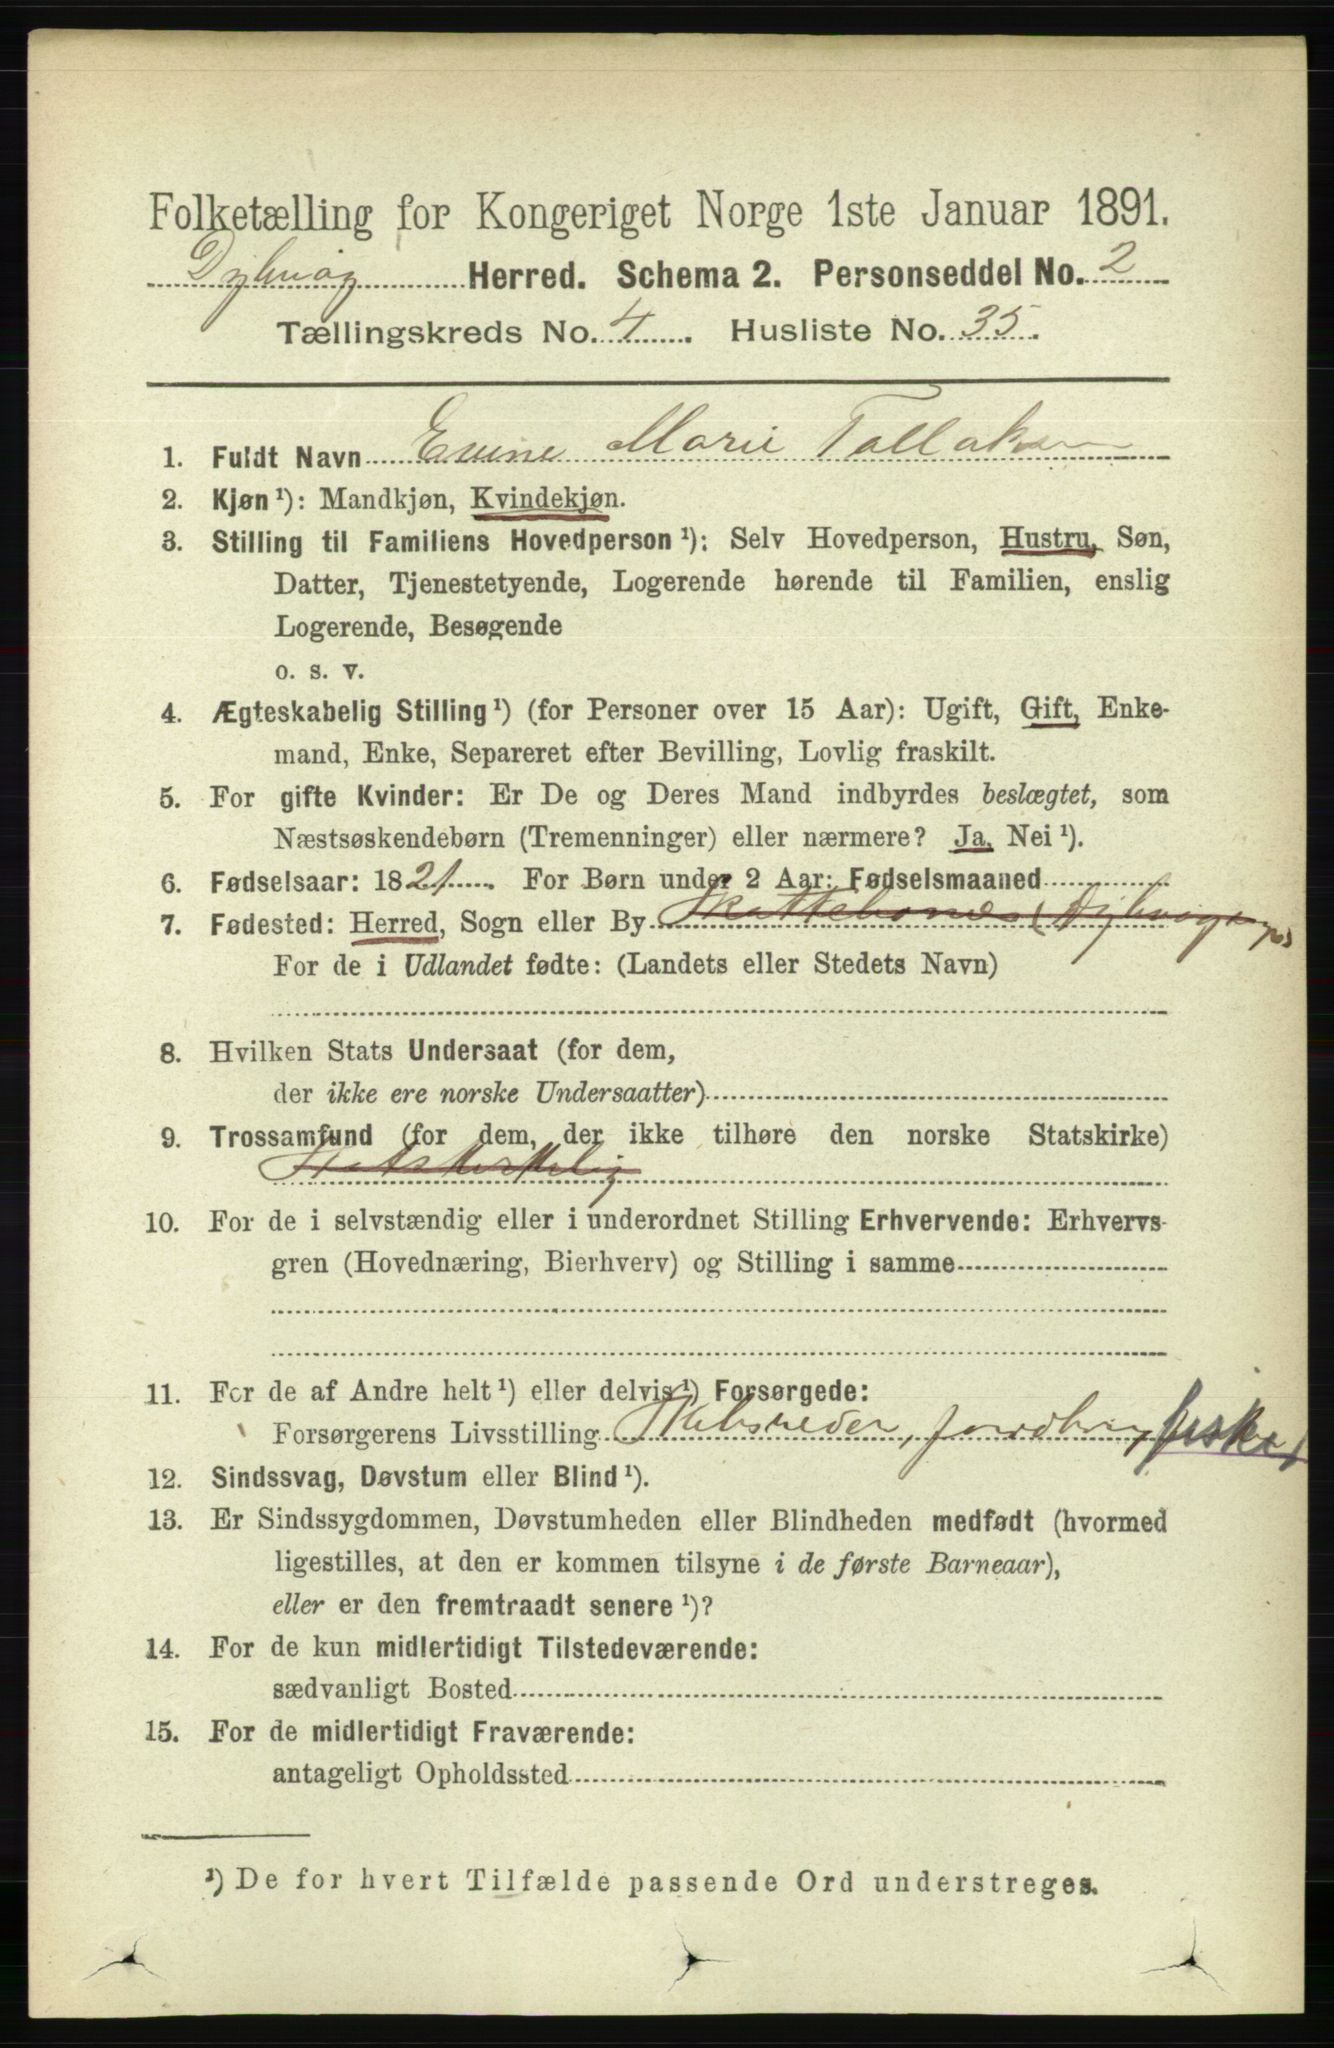 Folketælling for Kongeriget Norge 1ste Januar 1891.
Dybvåg Herred. Schema 2. Personseddel No. 2
Tællingskreds No. 4. Husliste No. 35.
1. Fuldt Navn Evine Marie Tallaksen
2. Kjøn ¹): Mandkjøn, Kvindekjøn.
3. Stilling til Familiens Hovedperson ¹): Selv Hovedperson, Hustru, Søn,
Datter, Tjenestetyende, Logerende hørende til Familien, enslig
Logerende, Besøgende
o. s. v.
4. Ægteskabelig Stilling ¹) (for Personer over 15 Aar): Ugift, Gift, Enke-
mand, Enke, Separeret efter Bevilling, Lovlig fraskilt.
5. For gifte Kvinder: Er De og Deres Mand indbyrdes beslægtet, som
Næstsøskendebørn (Tremenninger) eller nærmere? Ja, Nei ¹).
6. Fødselsaar: 1821. For Børn under 2 Aar: Fødselsmaaned
7. Fødested: Herred, Sogn eller By
For de i Udlandet fødte: (Landets eller Stedets Navn)
8. Hvilken Stats Undersaat (for dem,
der ikke ere norske Undersaatter)
9. Trossamfund (for dem, der ikke tilhøre den norske Statskirke)
Statskirkelig
10. For de i selvstændig eller i underordnet Stilling Erhvervende: Erhvervs-
gren (Hovednæring, Bierhverv) og Stilling i samme
11. For de af Andre helt ¹) eller delvis ¹) Forsørgede:
Forsørgerens Livsstilling Skibsreder, fisker
12. Sindssvag, Døvstum eller Blind ¹).
13. Er Sindssygdommen, Døvstumheden eller Blindheden medfødt (hvormed
ligestilles, at den er kommen tilsyne i de første Barneaar),
eller er den fremtraadt senere ¹)?
14. For de kun midlertidigt Tilstedeværende:
sædvanligt Bosted
15. For de midlertidigt Fraværende:
antageligt Opholdssted
¹) De for hvert Tilfælde passende Ord understreges.